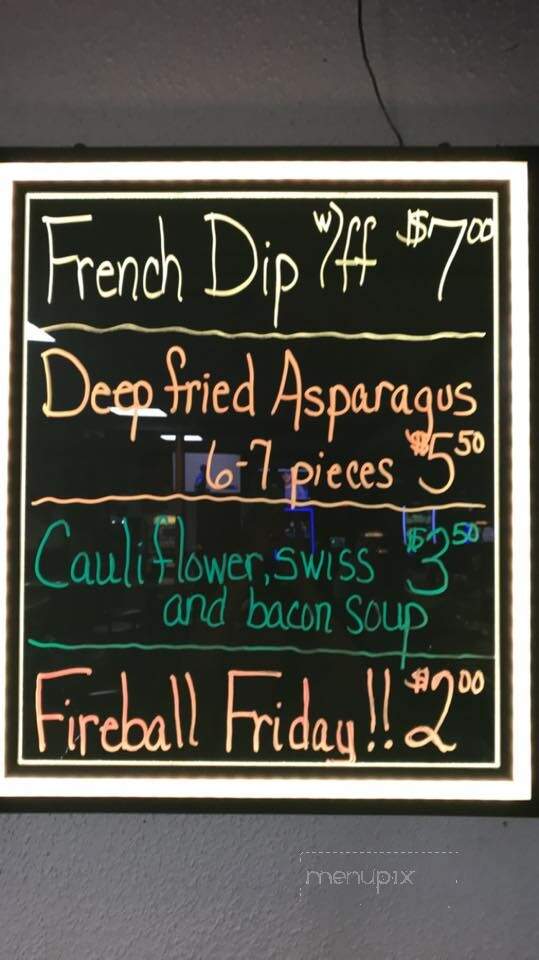 French Dip w/ff $7.00
Deep fried Asparagus
6-7 pieces $5.50
Cauliflower, swiss $3.50
and bacon soup
Fireball Friday!! $2.00
menupix